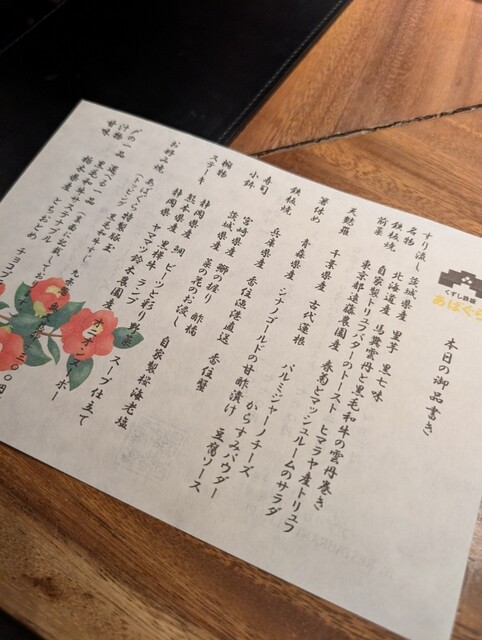 くずし鉄板
あばぐら
本日の御品書き
すり流し 茨城県産 里芋 黒七味
名物 自家製トリュフバターのトースト ヒマラヤ産トリュフ
鉄板焼 北海道産 馬糞雲丹と黒毛和牛の雲丹巻き
前菜 東京都遠藤農園産 春菊とマッシュルームのサラダ
天麩羅 千葉県産 古代蓮根 パルミジャーノチーズ
箸休め 青森県産 シナノゴールドの甘酢漬け からすみパウダー
鉄板焼 兵庫県産 香住漁港直送 香住蟹 豆腐ソース
寿司 宮崎県産 鰤の握り 酢橘
小鉢 茨城県産 菜の花のお浸し
椀物 熊本県産 蛤 ビーツと彩り野菜 スープ仕立て
ステーキ 静岡県産 黒樺牛 ランプ 自家製桜海老塩
静岡県産 ヤマツ鈴木農園産
お好み焼 あばぐら特製豚玉
トッピング 黒毛和牛
〆の一品 選べる一品
汁物
甘味 栃木県産 とちおとめ チョコ